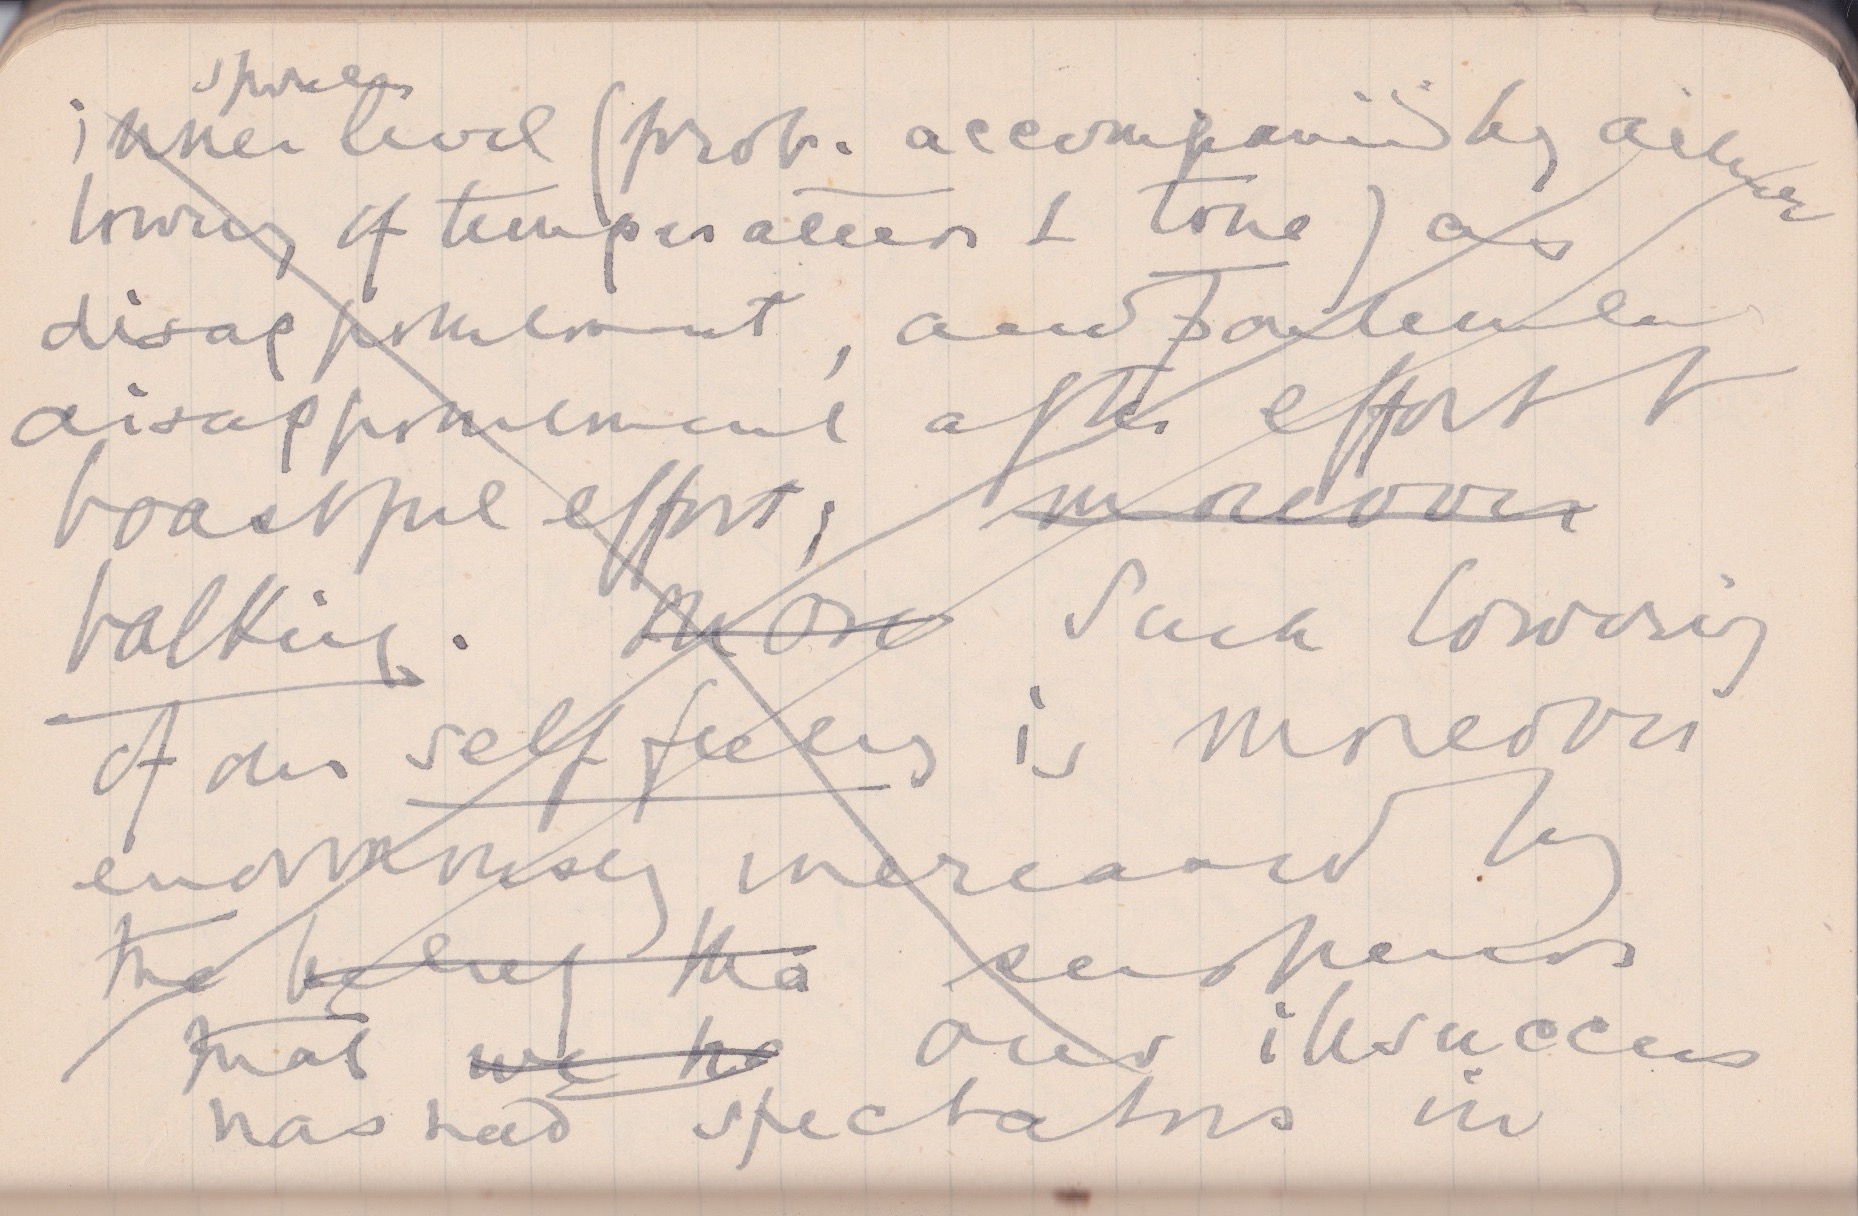 inner level (prob. accompanied by
lowering of temperature & tone) as
disappointment, and
disappointment after effort &
boastful effort;  moreover
balking. More Such lowering
of our self feeling is moreover
enormously increased by
the belief tha suspicion
that we ha our illsuccess
has had spectators in